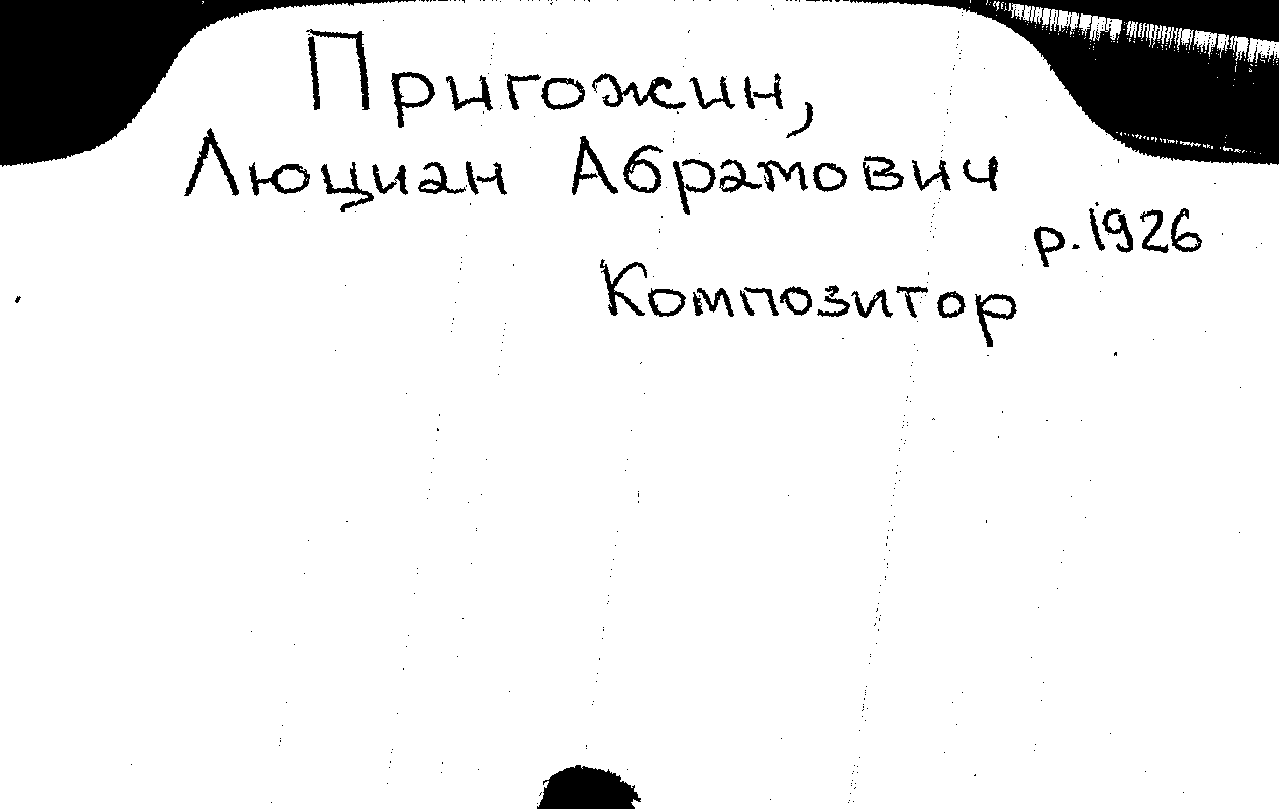 Пригожин,
Люциан Абрамович
р. 1926
Композитор